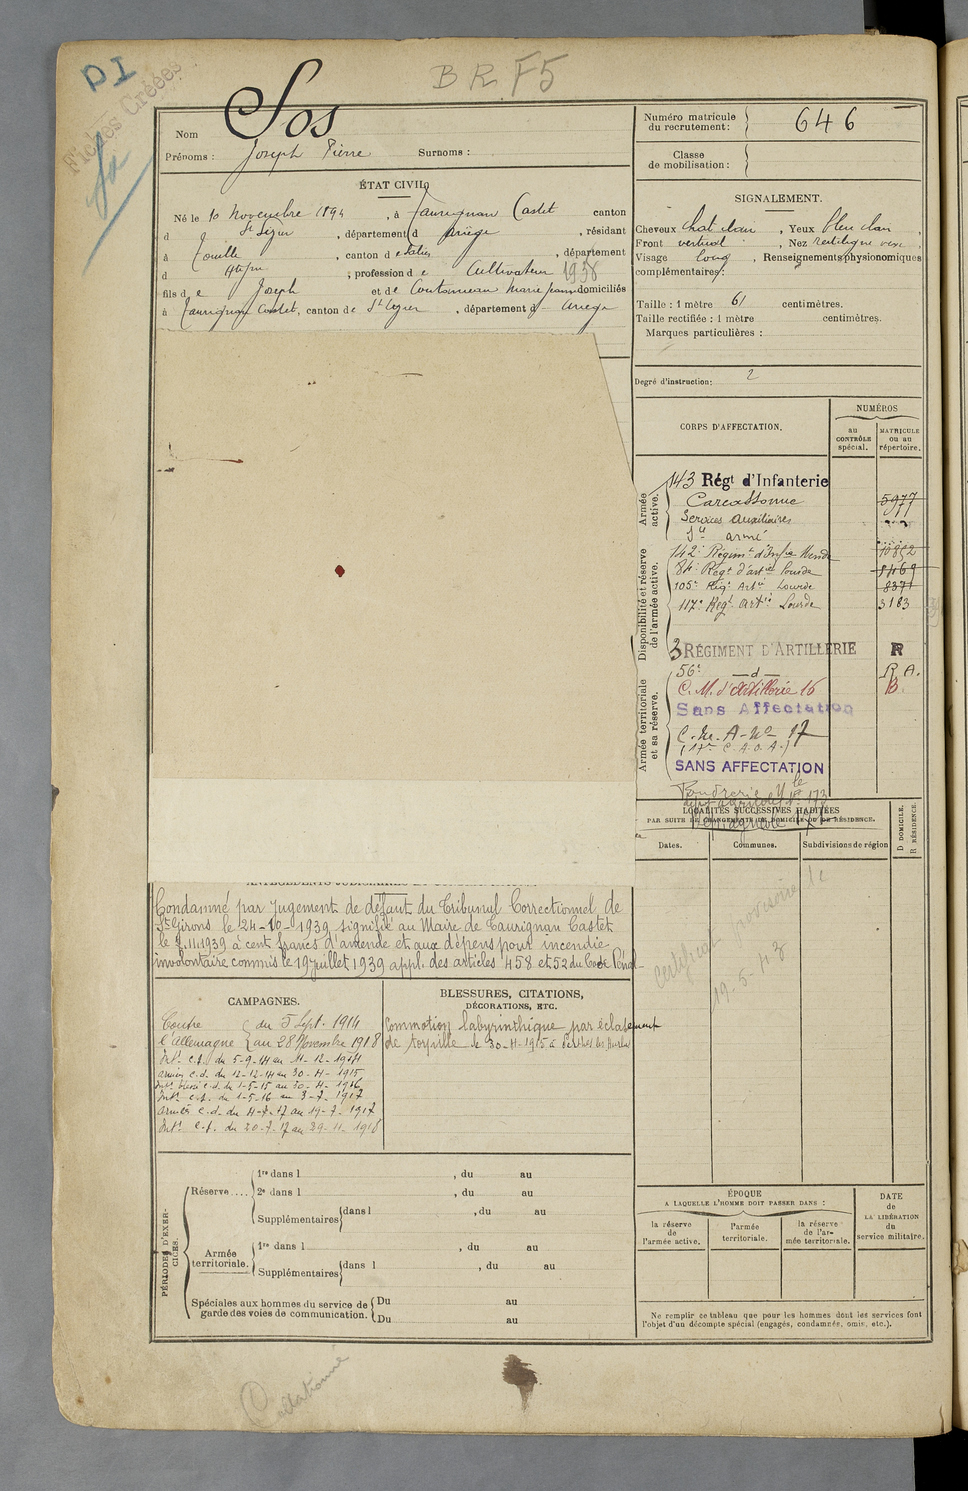 D I
Fiches Créées
B R F5
Nom Sos
Prénoms : Joseph Pierre Surnoms :
Numéro matricule
du recrutement : 646
Classe
de mobilisation :
ÉTAT CIVIL
Né le 10 Novembre 1894, à Taurignan Castet canton
d St Lizier, département d Ariège, résidant
à, canton d, département
d, profession de Cultivateur 1938
fils de Joseph et de Marie Jeanne domiciliés
à Taurignan Castet, canton de St Lizier, département d Ariège
SIGNALEMENT.
Cheveux chat clair, Yeux bleu clair,
Front vertical, Nez rectiligne,
Visage long, Renseignements physionomiques
complémentaires :
Taille : 1 mètre 61 centimètres.
Taille rectifiée : 1 mètre centimètres.
Marques particulières :
Degré d'instruction : 2
CORPS D'AFFECTATION.
NUMÉROS
au
CONTRÔLE
spécial.
MATRICULE
ou au
répertoire.
Armée
active.
143 Régt d'Infanterie
Carcassonne 5977
Services Auxiliaires
St armé
Disponibilité et réserve
de l'armée active.
142e Régimt d'Infie 10852
84e Régt d'artie Lourde 8469
105e Régt Artie Lourde 8371
117e Régt artie Lourde 3183
3 RÉGIMENT D'ARTILLERIE R
Armée territoriale
et sa réserve.
56e — d — R A.
C. M. d'Artillerie 16 B.
Sans Affectation
C. M. A - No 17
(17e C. A. O. A.)
SANS AFFECTATION
Poudrerie Nle
LOCALITÉS SUCCESSIVES HABITÉES
PAR SUITE DE CHANGEMENTS DE DOMICILE OU DE RÉSIDENCE.
Dates.
Communes.
Subdivisions de région
D DOMICILE.
R RÉSIDENCE.
Certificat provisoire le
19-5-43
Condamné par jugement de défaut du Tribunal Correctionnel de
St Girons le 24-10-1939 signifié au Maire de Taurignan Castet
le 7.11.1939 à cent francs d'amende et aux dépens pour incendie
involontaire commis le 19 juillet 1939 appl. des articles 458 et 52 du Code Pénal
CAMPAGNES.
Contre du 5 Sept. 1914
l'Allemagne au 28 Novembre 1918
Intr c.s. du 5-9-14 au 11-12-1914
armées c.d. du 12-12-14 au 30-4-1915
Intr blessé c.d. du 1-5-15 au 30-4-1916
Intr c.s. du 1-5-16 au 3-7-1917
armées c.d. du 4-7-17 au 19-7-1917
Intr c.s. du 20-7-17 au 29-11-1918
BLESSURES, CITATIONS,
DÉCORATIONS, ETC.
Commotion labyrinthique par éclatement
de torpille le 30-4-1915 à Perthes les Hurlus
PÉRIODES D'EXERCICES.
Réserve ....
1re dans l, du au
2e dans l, du au
Supplémentaires dans l, du au
Armée
territoriale.
1re dans l, du au
Supplémentaires dans l, du au
Spéciales aux hommes du service de
garde des voies de communication.
Du au
Du au
ÉPOQUE
A LAQUELLE L'HOMME DOIT PASSER DANS :
la réserve
de
l'armée active.
l'armée
territoriale.
la réserve
de l'ar-
mée territoriale.
DATE
de
LA LIBÉRATION
du
service militaire.
Ne remplir ce tableau que pour les hommes dont les services font
l'objet d'un décompte spécial (engagés, condamnés, omis, etc.).
Collationné